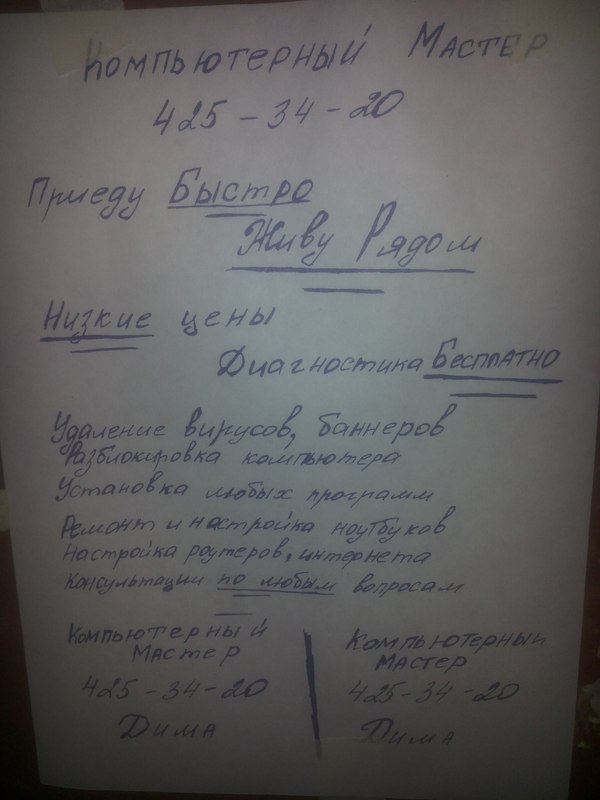 Компьютерный Мастер
425-34-20
Приеду Быстро
Живу Рядом
Низкие цены
Диагностика Бесплатно
Удаление вирусов, баннеров
Разблокировка компьютера
Установка любых программ
Ремонт и настройка ноутбуков
Настройка роутеров, интернета
Консультации по любым вопросам
Компьютерный
Мастер
425-34-20
Дима
Компьютерный
Мастер
425-34-20
Дима